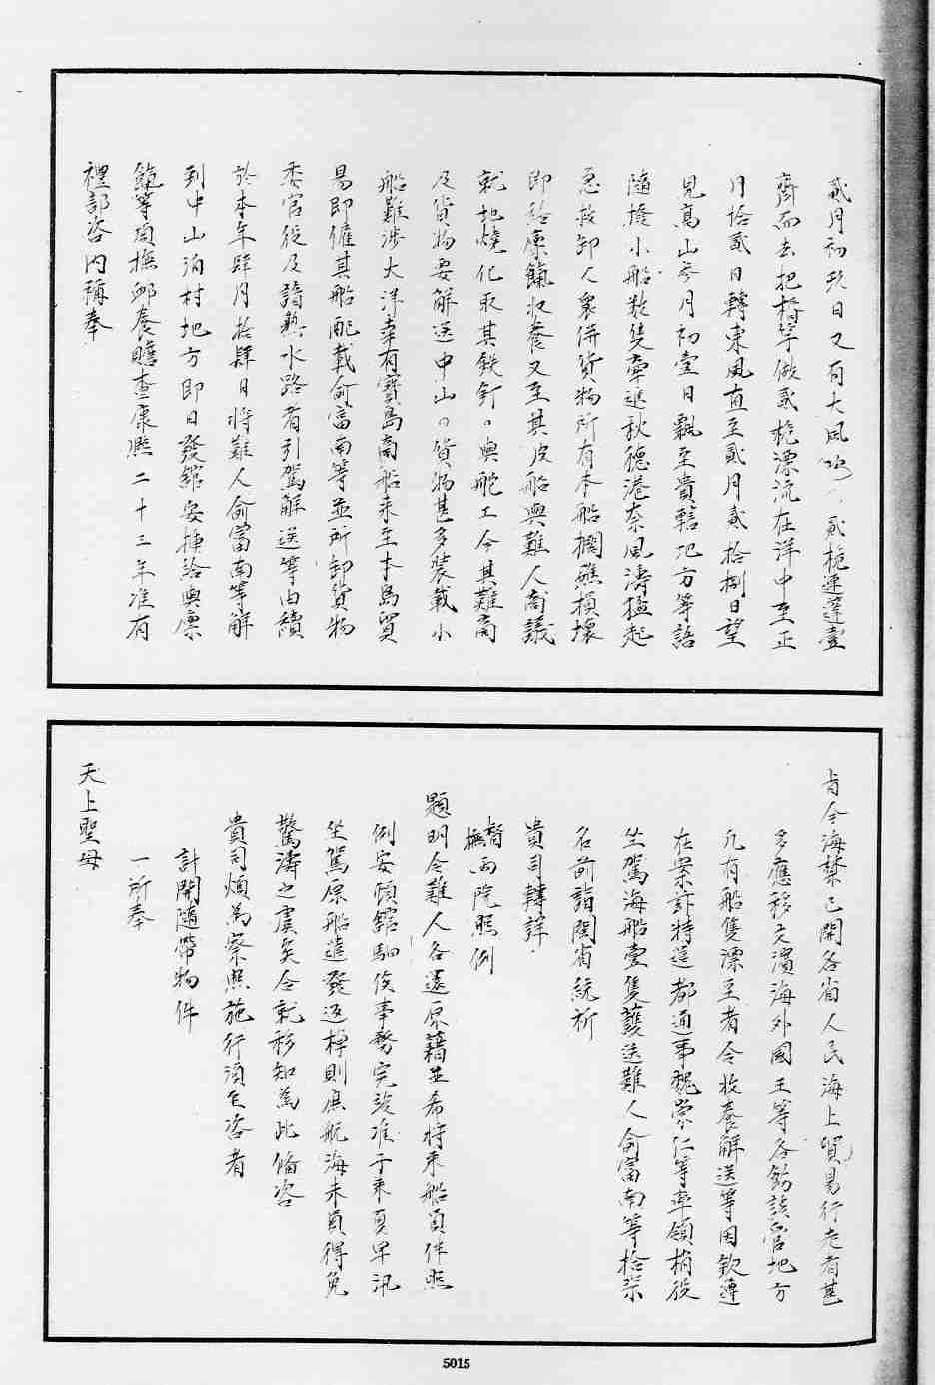 貳月初玖日又有大風吹ㄟ貳桅連蓬壹
齊而去把椙竿做貳桅漂流在洋中至正
月拾貳日轉東風直至貳月貳拾捌日望
見高山叁月初壹日飄至貴轄地方等語
隨撥小船数隻牽進秋德港奈風濤猛起
急救卸人衆併貨物所有本船擱礁損壞
即給廩餼收養又至其皮船與難人商議
就地燒化取其鉄釘。與舵工今其難商
及貨物要解送中山。貨物甚多裝載小
船難涉大洋幸有寶島商船来至本島貿
易即僱其船配載俞富南等並所卸貨物
委官役及諳熟水路者引駕解送等由續
於本年肆月拾肆日將難人俞富南等解
到中山泊村地方即日發舘安揷給與廪
餼等項撫邺養贍查康熙二十三年准有
禮部咨内稱奉
旨今海禁已開各省人民海上貿易行走者甚
多應移文濱海外國王等各飭該管地方
凡有船隻漂至者令收養解送等因欽遵
在案玆特遣都通事魏崇仁等率領梢役
坐駕海船壹隻護送難人俞富南等拾柒
名前詣閩省統祈
貴司轉詳
督撫両院照例
題明令難人各還原籍並希将来船員伴照
例安頓舘駅俟事務完竣准于来夏早汛
坐駕原船遣發返棹則俱航海末員得免
驚濤之虞矣合就移知為此備咨
貴司煩為察照施行須至咨者
計開隨帶物件
一所奉
天上聖母
5015